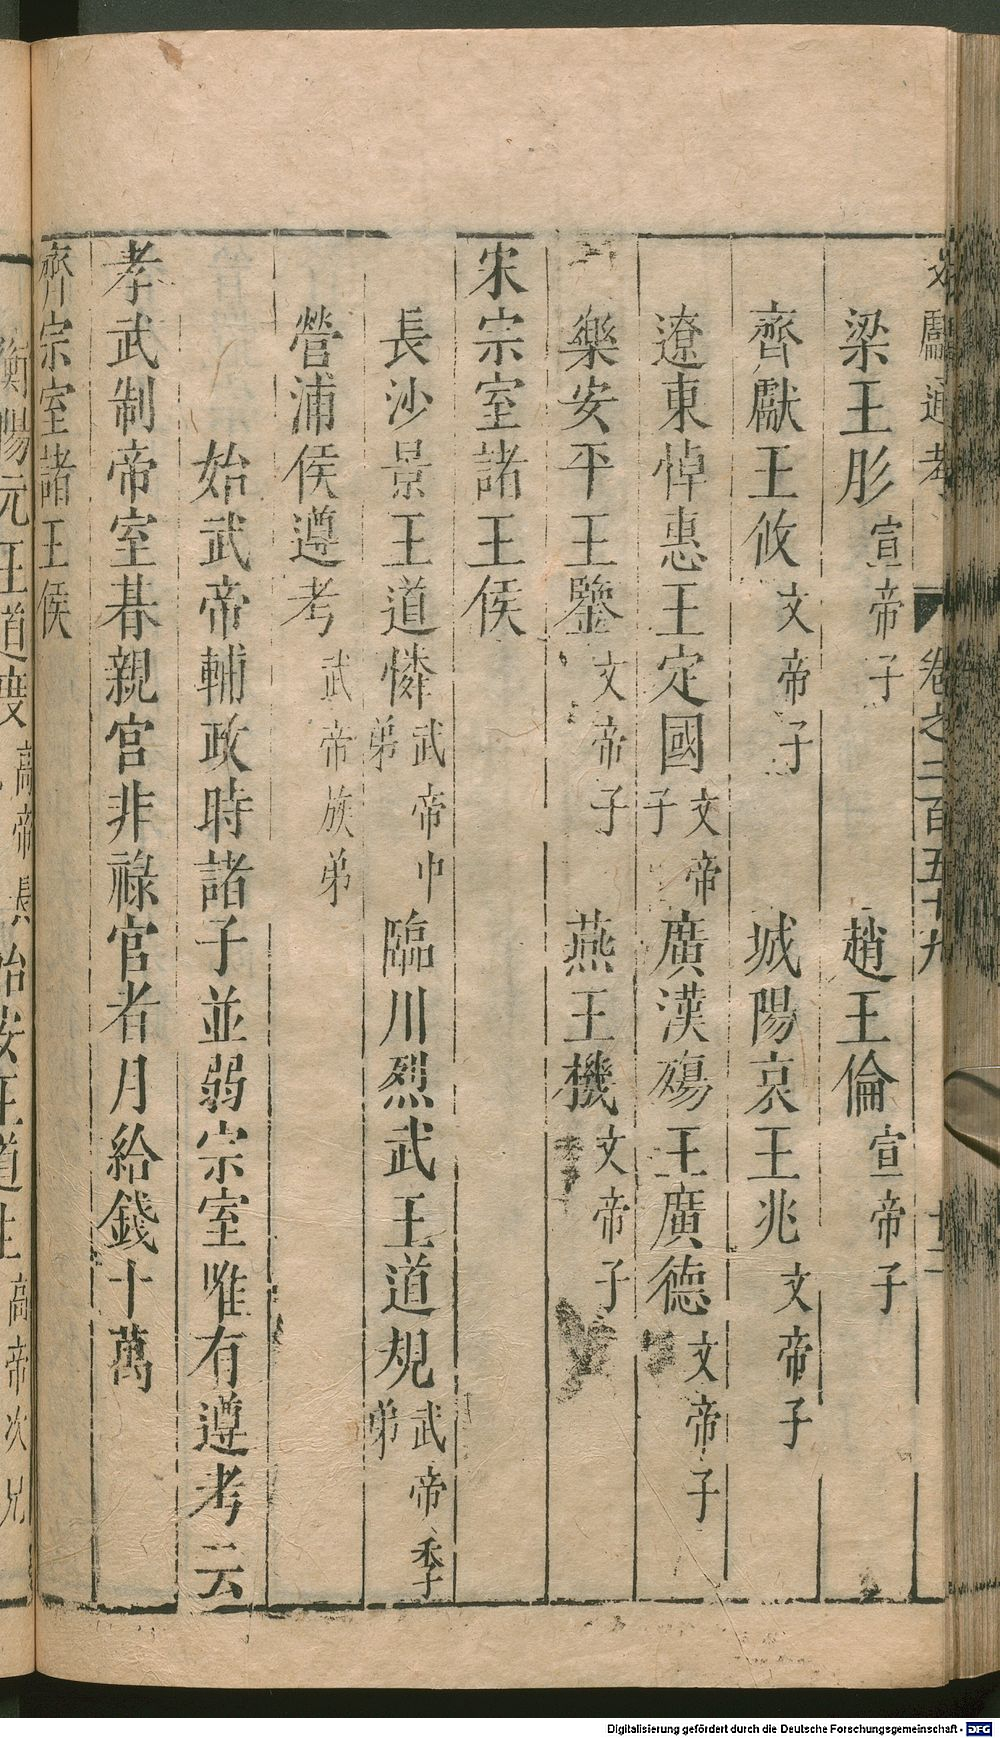 文獻通考 卷之二百五十九 十二
梁王肜宣帝子 趙王倫宣帝子
齊獻王攸文帝子 城陽哀王兆文帝子
遼東悼惠王定國文帝子 廣漢殤王廣德文帝子
樂安平王鑒文帝子 燕王機文帝子
宋宗室諸王侯
長沙景王道憐武帝中弟 臨川烈武王道規武帝季弟
營浦侯遵考武帝族弟
始武帝輔政時諸子並弱宗室唯有遵考云
孝武制帝室朞親官非祿官者月給錢十萬
齊宗室諸王侯
衡陽元王道度高帝長 始安王道生高帝次兄
Digitalisierung gefördert durch die Deutsche Forschungsgemeinschaft - DFG